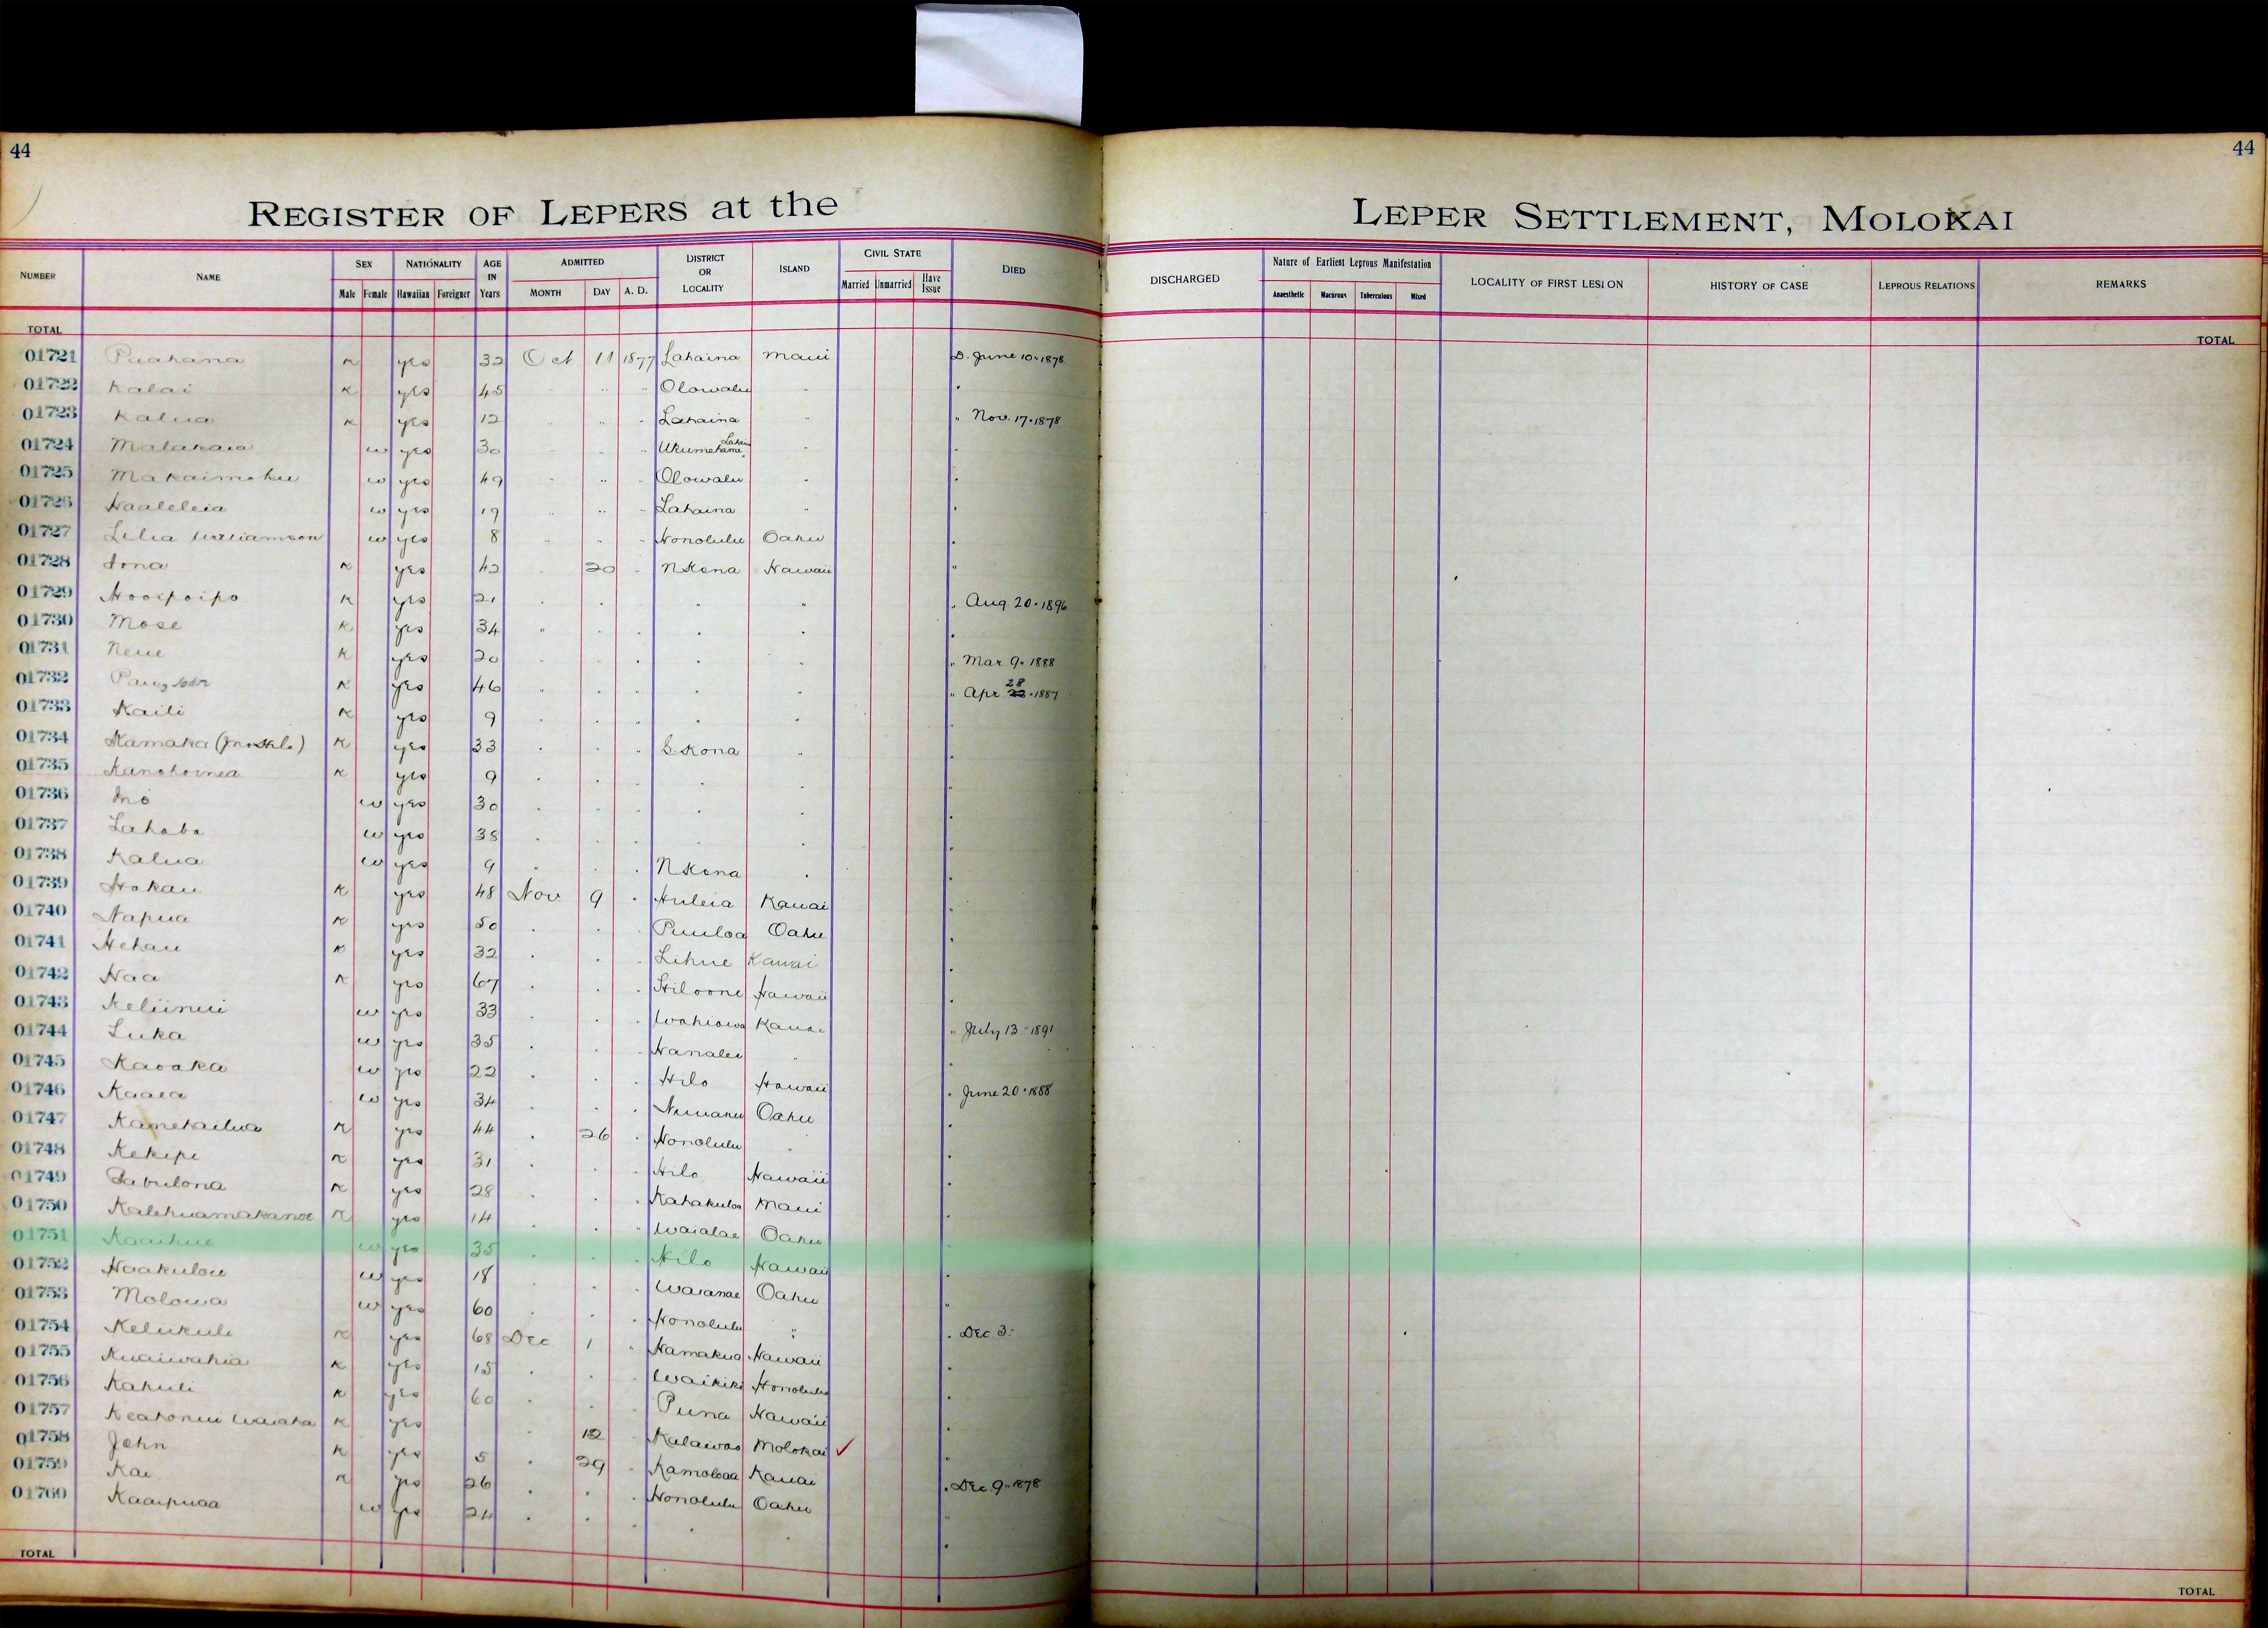 44
44
REGISTER OF LEPERS at the LEPER SETTLEMENT, MOLOKAI
NUMBER NAME SEX NATIONALITY AGE IN Years ADMITTED DISTRICT OR LOCALITY ISLAND CIVIL STATE DIED DISCHARGED Nature of Earliest Leprous Manifestation LOCALITY OF FIRST LESION HISTORY OF CASE LEPROUS RELATIONS REMARKS
Male Female Hawaiian Foreigner MONTH DAY A. D. Married Unmarried Have Issue Anaesthetic Macurous Tuberculous Mixed
TOTAL TOTAL
01721 Puahana K yes 32 Oct 11 1877 Lahaina Maui D. June 10 " 1878
01722 Kalai K yes 45 " " " Olowalu " "
01723 Kalua K yes 12 " " " Lahaina " " Nov. 17 " 1878
01724 Malakaia w yes 30 " " " Ukumehame " "
01725 Makaimoku w yes 49 " " " Olowalu " "
01726 Haaleleia w yes 19 " " " Lahaina " "
01727 Lilia Williamson w yes 8 " " " Honolulu Oahu "
01728 Iona K yes 42 " 20 " N Kona Hawaii "
01729 Hooipoipo K yes 21 " " " " " Aug. 20 " 1896
01730 Mose K yes 34 " " " " " "
01731 Neue K yes 20 " " " " " " Mar 9 " 1888
01732 K yes 46 " " " " " " Apr 28 " 1887
01733 Kaili K yes 9 " " " " " "
01734 Kamaka K yes 33 " " " S. Kona " "
01735 K yes 9 " " " " " "
01736 w yes 30 " " " " " "
01737 w yes 38 " " " " " "
01738 Kalua w yes 9 " " " N Kona " "
01739 Hokau K yes 48 Nov 9 " Huleia Kauai "
01740 Napua K yes 50 " " " Puuloa Oahu "
01741 Hehau K yes 32 " " " Lihue Kauai "
01742 Naa K yes 67 " " " Hiloone Hawaii "
01743 Keliinui w yes 33 " " " Wahiawa Kauai " July 13 " 1891
01744 Luka w yes 35 " " " Hanalei " "
01745 Kaoaka w yes 22 " " " Hilo Hawaii " June 20 " 1888
01746 Kaaea w yes 34 " " " Nuuanu Oahu "
01747 Kamekailua K yes 44 " 26 " Honolulu " "
01748 Kekipi K yes 31 " " " Hilo Hawaii "
01749 Zabulona K yes 28 " " " Kahakuloa Maui "
01750 Kalehuamakanoe K yes 14 " " " Waialae Oahu "
01751 Kaaihue w yes 35 " " " Hilo Hawaii "
01752 Naakulou w yes 18 " " " Waianae Oahu "
01753 Molowa w yes 60 " " " Honolulu " " Dec 3.
01754 Kelukuli K yes 68 Dec 1 " Hamakua Hawaii "
01755 Kuaiwahia K yes 15 " " " Waikiki Honolulu "
01756 Kahuli K yes 60 " " " Puna Hawaii "
01757 Keahonui Waiaha K yes " 12 " Kalawao Molokai ✓ "
01758 John K yes 5 " 29 " Kamoloaa Kauai " Dec 9 " 1878
01759 Kai K yes 26 " " " Honolulu Oahu "
01760 Kaaipuaa w yes 24 " " " " " "
TOTAL TOTAL